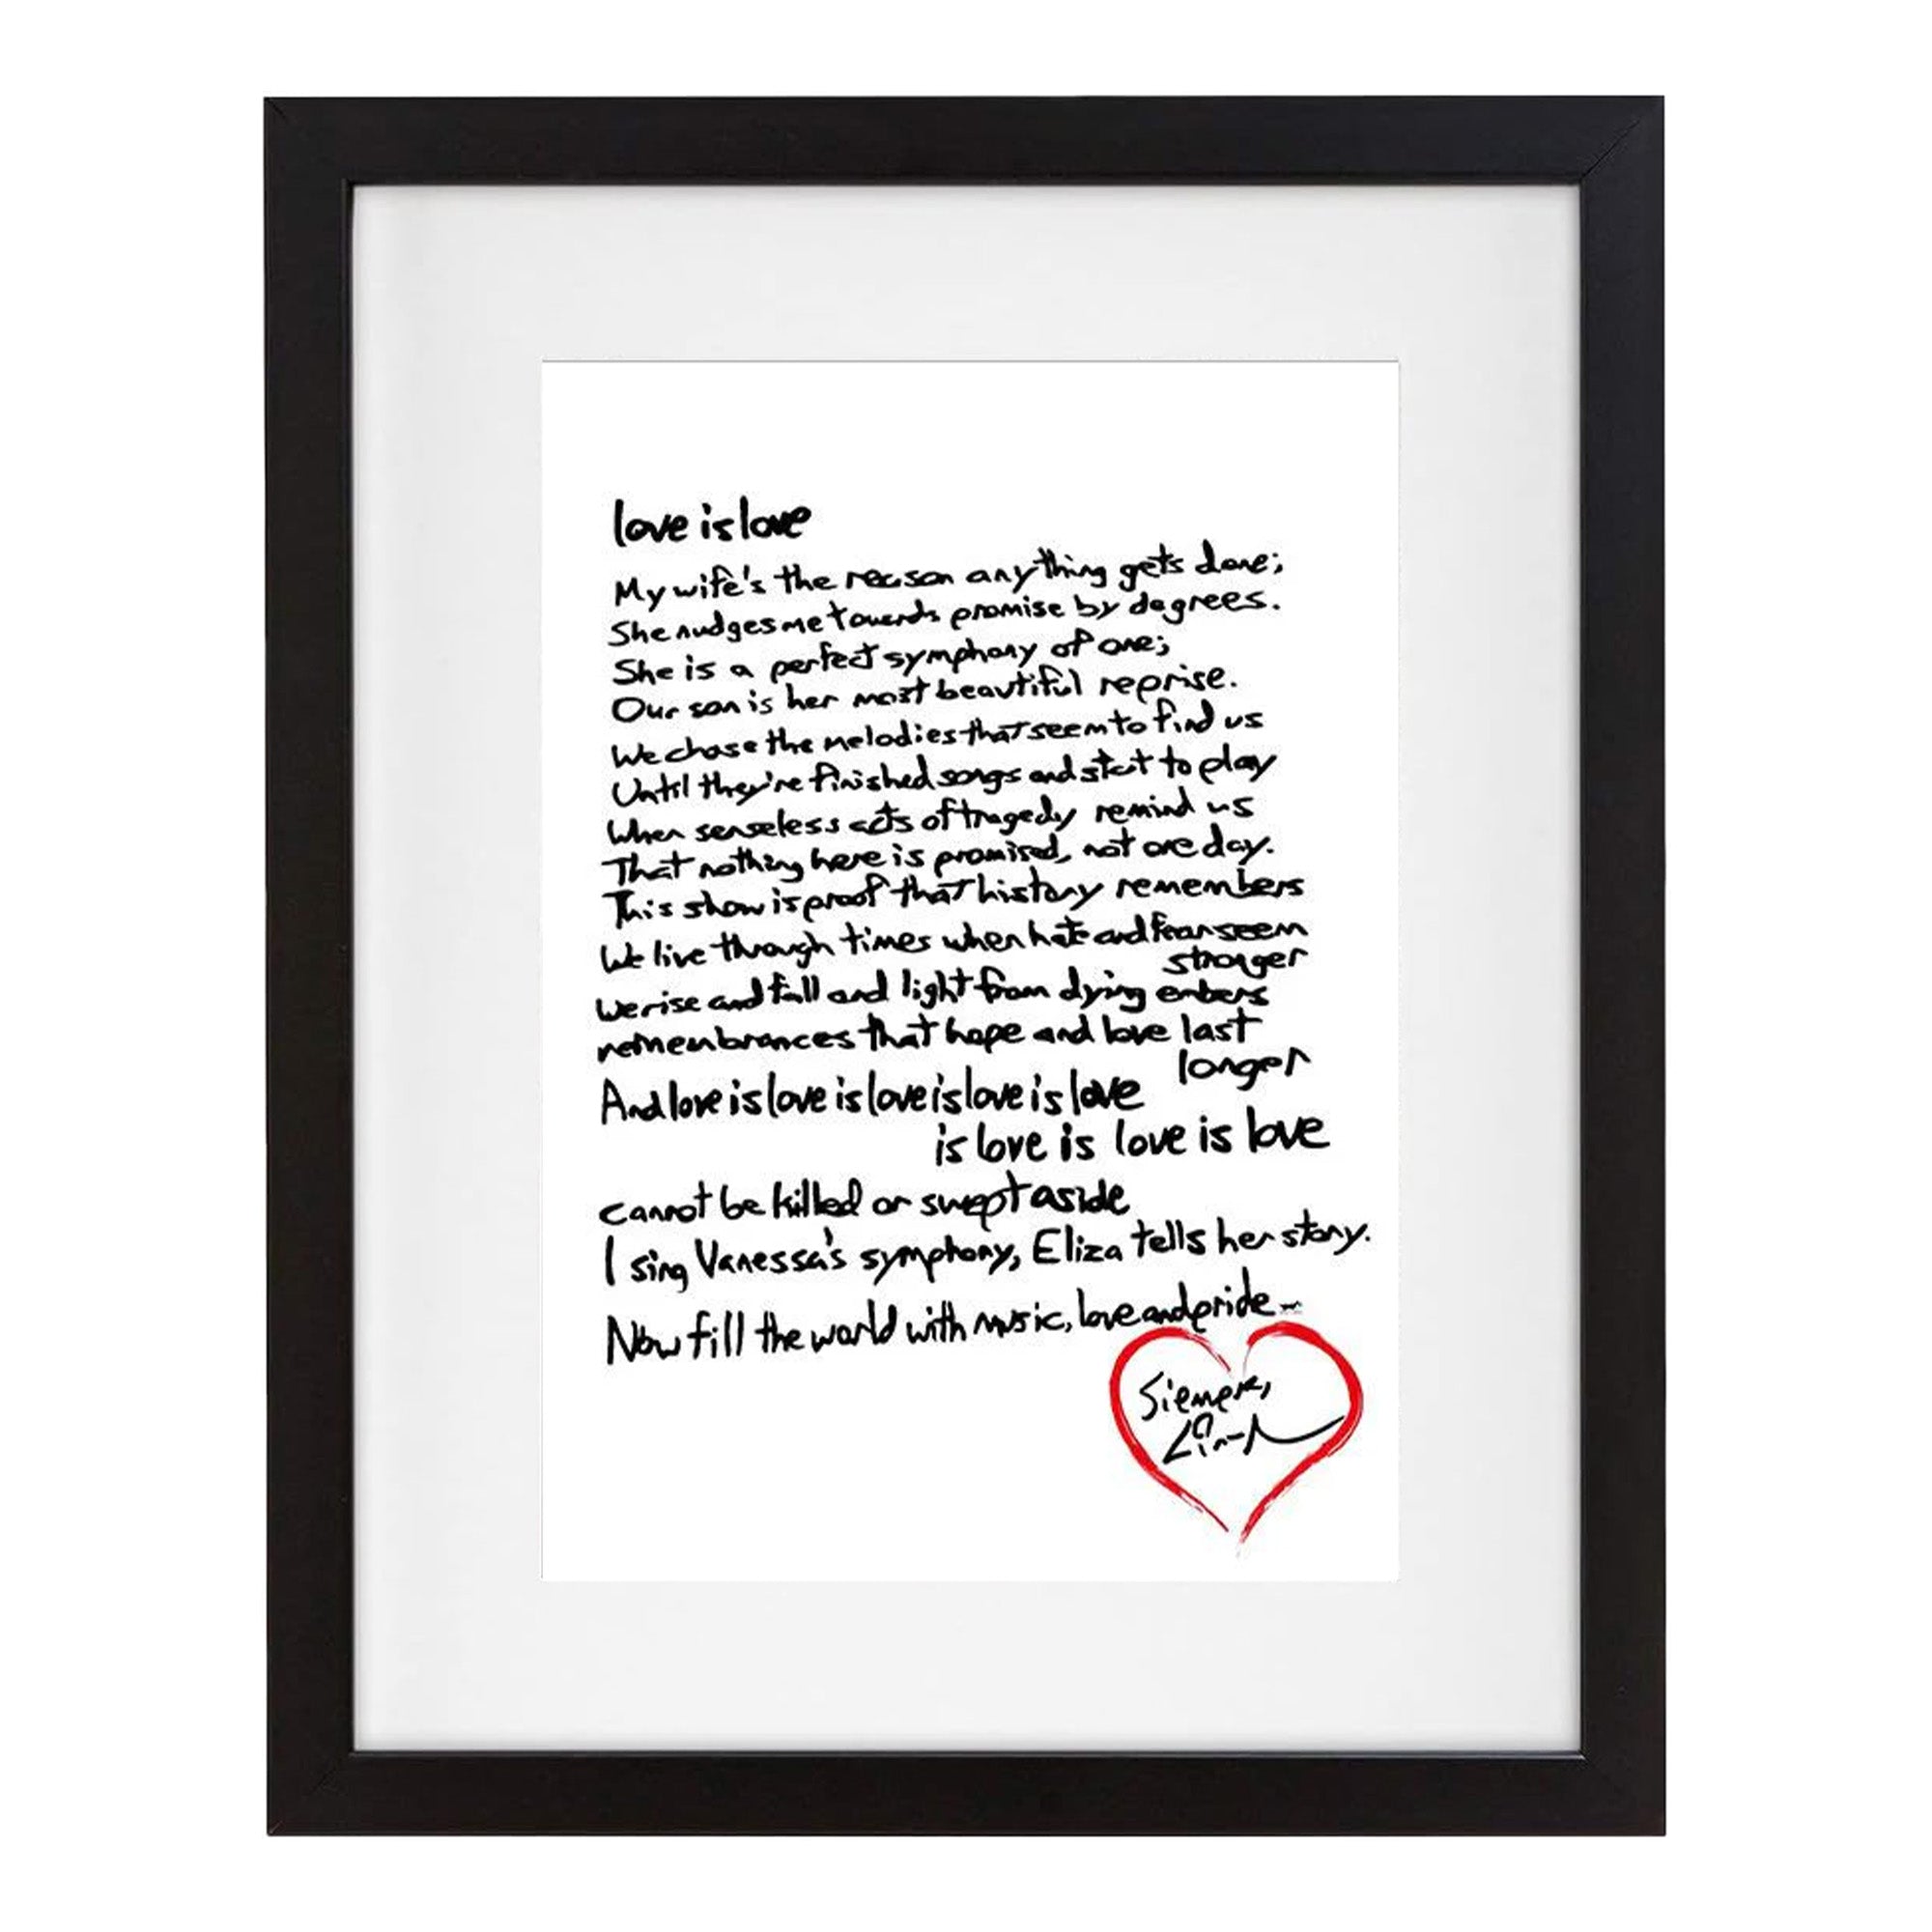 love is love
My wife's the reason anything gets done;
She nudges me towards promise by degrees.
She is a perfect symphony of one;
Our son is her most beautiful reprise.
We chase the melodies that seem to find us
Until they're finished songs and start to play
When senseless acts of tragedy remind us
That nothing here is promised, not one day.
This show is proof that history remembers
We live through times when hate and fear seem
stronger
We rise and fall and light from dying embers
remembrances that hope and love last
longer
And love is love is love is love is love
is love is love is love
cannot be killed or swept aside
I sing Vanessa's symphony, Eliza tells her story.
Now fill the world with music, love and pride—
Siempre,
Lin-M